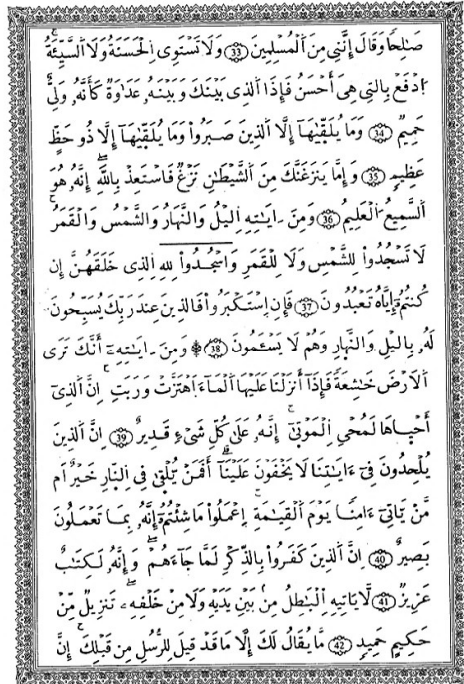 صَـٰلِحًا وَقَالَ إِنَّنِى مِنَ ٱلْمُسْلِمِينَ 33 وَلَا تَسْتَوِى ٱلْحَسَنَةُ وَلَا ٱلسَّيِّئَةُ
ٱدْفَعْ بِالتِى هِىَ أَحْسَنُ فَإِذَا ٱلذِى بَيْنَكَ وَبَيْنَهُۥ عَدَٰوَةٌ كَأَنَّهُۥ وَلِىٌّ
حَمِيمٌ 34 وَمَا يُلَقَّىٰهَآ إِلَّا ٱلذِينَ صَبَرُوا۟ وَمَا يُلَقَّىٰهَآ إِلَّا ذُو حَظٍّ
عَظِيمٍ 35 وَإِمَّا يَنزَغَنَّكَ مِنَ ٱلشَّيْطَـٰنِ نَزْغٌ فَاسْتَعِذْ بِاللَّهِ إِنَّهُۥ هُوَ
ٱلسَّمِيعُ ٱلْعَلِيمُ 36 وَمِنَ ـايَـٰتِهِ ٱليْلُ وَالنَّهَارُ وَالشَّمْسُ وَالْقَمَرُ
لَا تَسْجُدُوا۟ لِلشَّمْسِ وَلَا لِلْقَمَرِ وَاسْجُدُوا۟ لِلهِ ٱلذِى خَلَقَهُنَّ إِن
كُنتُمُۥٓ إِيَّاهُ تَعْبُدُونَ 37 فَإِنِ ٱسْتَكْبَرُوا۟ فَالذِينَ عِندَ رَبِّكَ يُسَبِّحُونَ
لَهُۥ بِاليْلِ وَالنَّهِارِ وَهُمْ لَا يَسْـَٔمُونَ 38 ۞ وَمِنَ ـايَـٰتِهِۦٓ أَنَّكَ تَرَى
ٱلَارْضَ خَـٰشِعَةً فَإِذَآ أَنزَلْنَا عَلَيْهَا ٱلْمَآءَ ٱهْتَزَّتْ وَرَبَتِ ۚ اِنَّ ٱلذِىٓ
أَحْيِاهَا لَمُحْىِ ٱلْمَوْتِىٰٓ ۚ إِنَّهُۥ عَلَىٰ كُلِّ شَىْءٍ قَدِيرٌ 39 اِنَّ ٱلذِينَ
يُلْحِدُونَ فِىٓ ءَايَـٰتِنَا لَا يَخْفَوْنَ عَلَيْنَآ ۗ أَفَمَنْ يُّلْقِىٰ فِى ٱلنِّارِ خَيْرٌ اَم
مَّنْ يَّاتِىٓ ءَامِنًا يَوْمَ ٱلْقِيَـٰمَةِ ۚ اِعْمَلُوا۟ مَا شِئْتُمُۥٓ إِنَّهُۥ بِمَا تَعْمَلُونَ
بَصِيرٌ 40 اِنَّ ٱلذِينَ كَفَرُوا۟ بِالذِّكْرِ لَمَّا جَآءَهُمْ ۖ وَإِنَّهُۥ لَكِتَـٰبٌ
عَزِيزٌ 41 لَّا يَاتِيهِ ٱلْبَـٰطِلُ مِنۢ بَيْنِ يَدَيْهِ وَلَا مِنْ خَلْفِهِۦ ۖ تَنزِيلٌ مِّنْ
حَكِيمٍ حَمِيدٍ 42 مَّا يُقَالُ لَكَ إِلَّا مَا قَدْ قِيلَ لِلرُّسُلِ مِن قَبْلِكَ ۚ إِنَّ